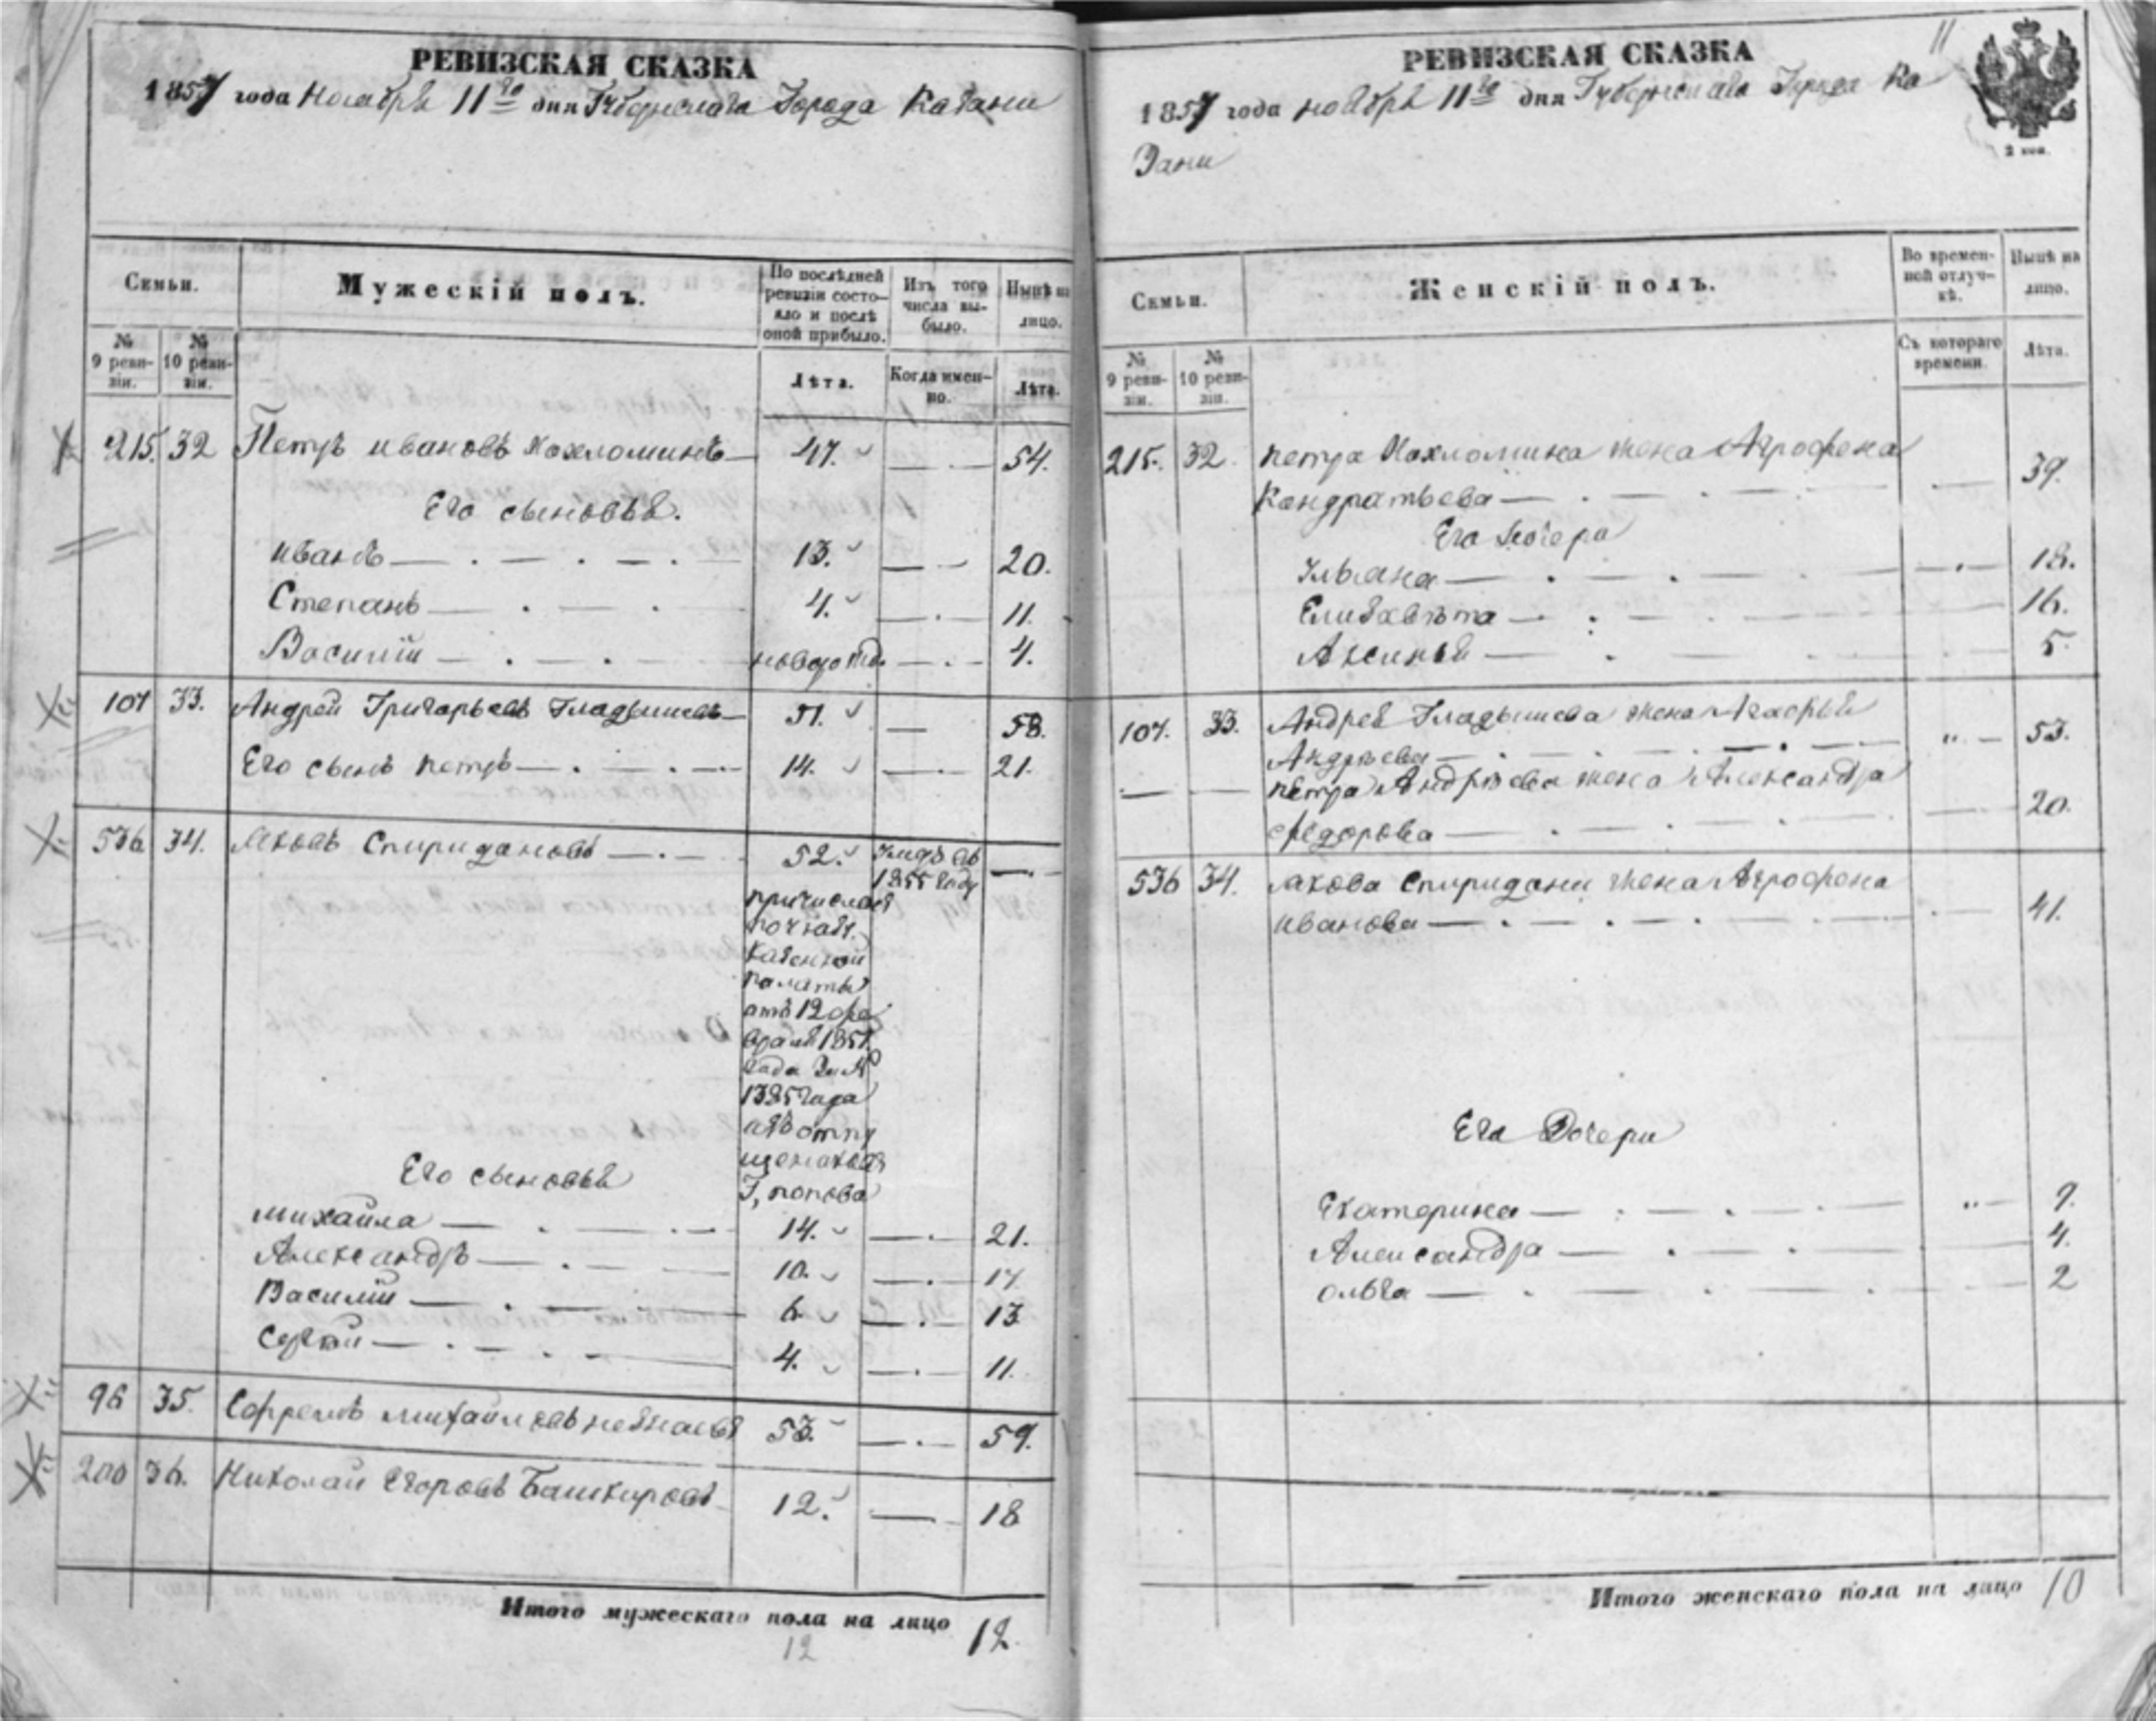 РЕВИЗСКАЯ СКАЗКА
1857 года Ноября 11го дня Губернскаго Города Казани
Семьи.
Мужескій полъ.
По послѣдней ревизіи состояло и послѣ оной прибыло.
Изъ того числа выбыло.
Нынѣ на лицо.
№ 9 ревизіи.
№ 10 ревизіи.
Лѣта.
Когда именно.
Лѣта.
215. 32 Петръ Ивановъ Хохломинъ 47. 54.
Его сыновья.
Иванъ 13. 20.
Степанъ 4. 11.
Василій новорожд. 4.
107 33. Андрей Григорьевъ Гладышевъ 51. 58.
Его сынъ Петръ 14. 21.
536 34. Яковъ Спиридоновъ 52. умеръ въ
1855 году
причислен
по указу
Казенной
палаты
отъ 12 фев
раля 1851.
года за №
1385
изъ отпу
щениковъ
Г, попова
Его сыновья
Михайла 14. 21.
Александръ 10. 17
Василій 6. 13
Сергѣй 4. 11.
96 35. Ефремъ Михайловъ 53. 59.
200 36. Николай Егоровъ Башкировъ 12. 18
Итого мужескаго пола на лицо 12.
12
11
РЕВИЗСКАЯ СКАЗКА
1857 года ноября 11го дня Губернскаго Города Ка
зани
2 коп.
Семьи.
Женскій полъ.
Во временной отлучкѣ.
Нынѣ на лицо.
№ 9 ревизіи.
№ 10 ревизіи.
Съ котораго времени.
Лѣта.
215. 32. Петра Хохломина жена Агрофена
Кондратьева 39.
Его Дочери
Ульяна 18.
Елизавѣта 16.
Аксинья 5.
107. 33. Андрея Гладышева жена Агафья
Андреева 53.
Петра Андрѣева жена Александра
Федорова 20.
536 34. Якова Спиридони жена Агрофена
Иванова 41.
Его Дочери
Екатерина 9.
Александра 4.
Ольга 2
Итого женскаго пола на лицо 10